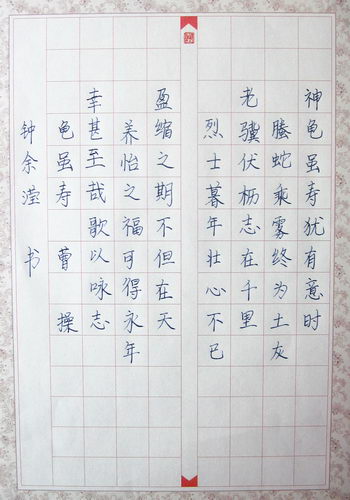 神龟虽寿犹有意时
腾蛇乘雾终为土灰
老骥伏枥志在千里
烈士暮年壮心不已
盈缩之期不但在天
养怡之福可得永年
幸甚至哉歌以咏志
龟虽寿 曹 操
钟余滢 书